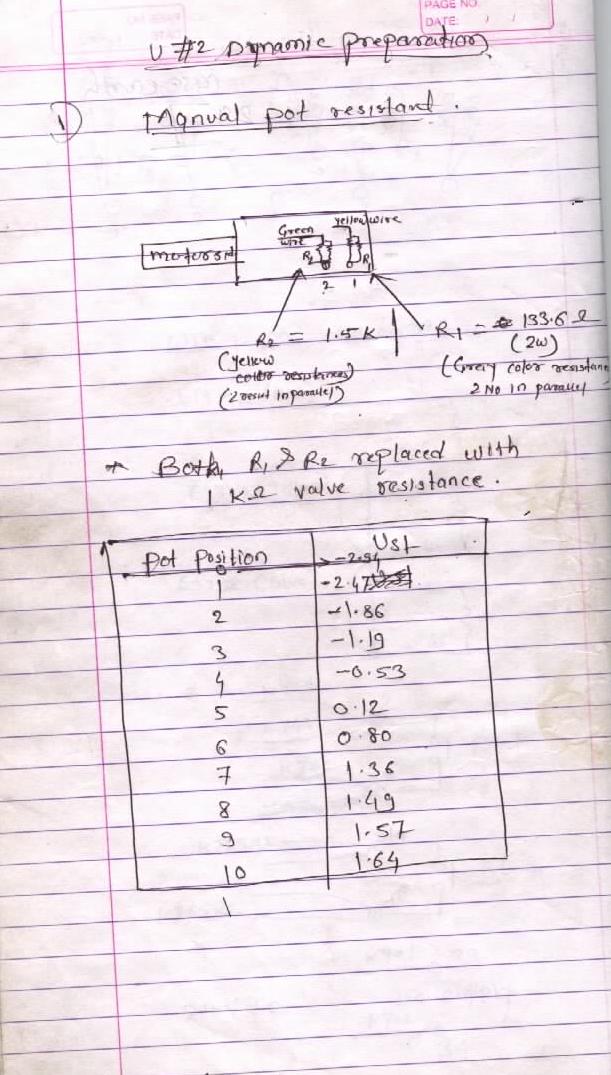 PAGE NO.
DATE: / /
U #2 Dynamic preparation
1) Manual pot resistant.
Yellow wire
Green
wire
motorset
R2 R1
2 1
R2 = 1.5K
R1 = 133.6 Ω
(2w)
(Yellow
color resistances)
(2 resist in parallel)
(Grey color resistan
2 No in parallel
* Both, R1 & R2 replaced with
1 KΩ valve resistance.
Pot Position Ust
0 -2.54
1 -2.47
2 -1.86
3 -1.19
4 -0.53
5 0.12
6 0.80
7 1.36
8 1.49
9 1.57
10 1.64